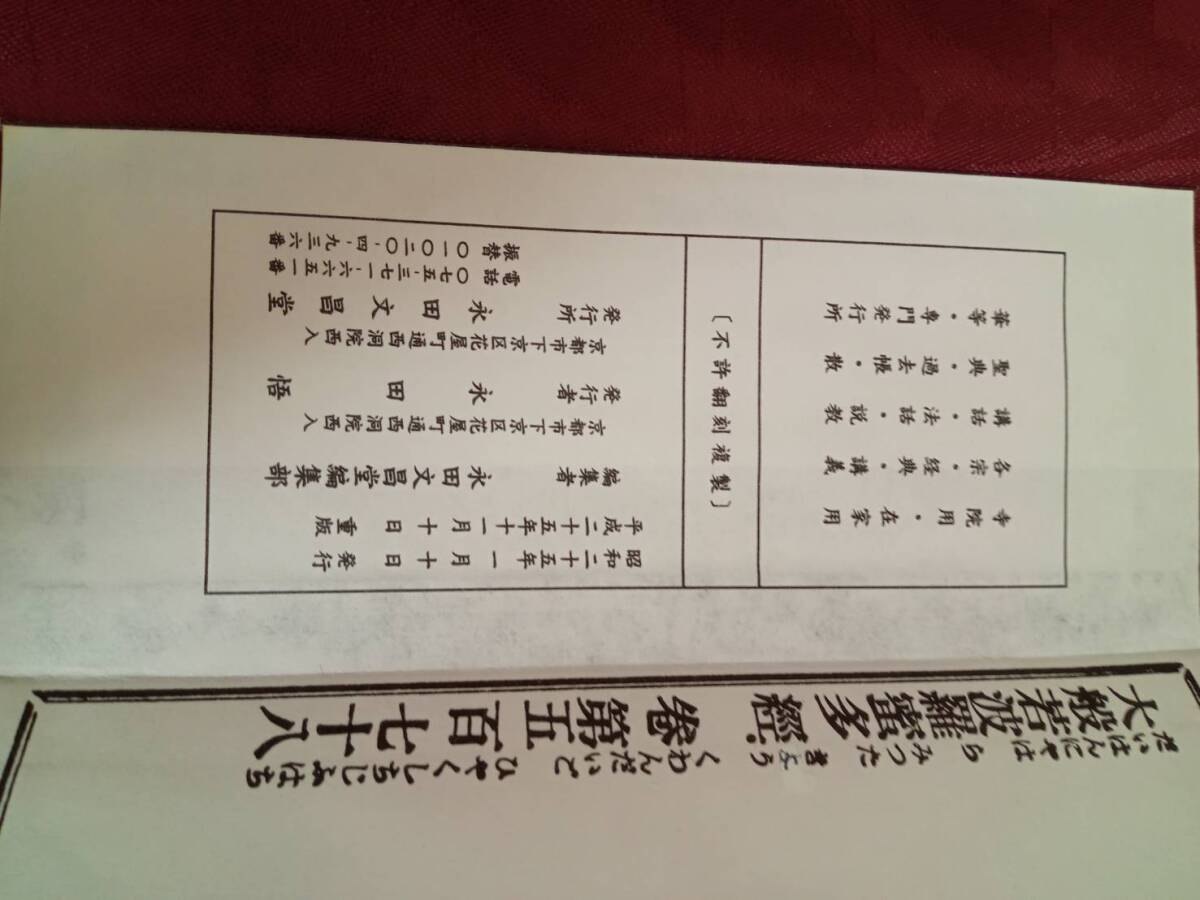 大般若波羅蜜多經卷第五百七十八
だいはんにやはらみつたきようくわんだいごひやくしちじふはち
寺院用・在家用
各宗・経典・講義
講話・法話・説教
聖典・過去帳・散
華等・専門発行所
〔不許翻刻複製〕
昭和二十五年一月十日 発行
平成二十五年十一月十日 重版
編集者 永田文昌堂編集部
京都市下京区花屋町通西洞院西入
発行者 永田 悟
京都市下京区花屋町通西洞院西入
発行所 永田文昌堂
電話 〇七五-三七一-六六五一番
振替 〇一〇二〇-四-九三六番